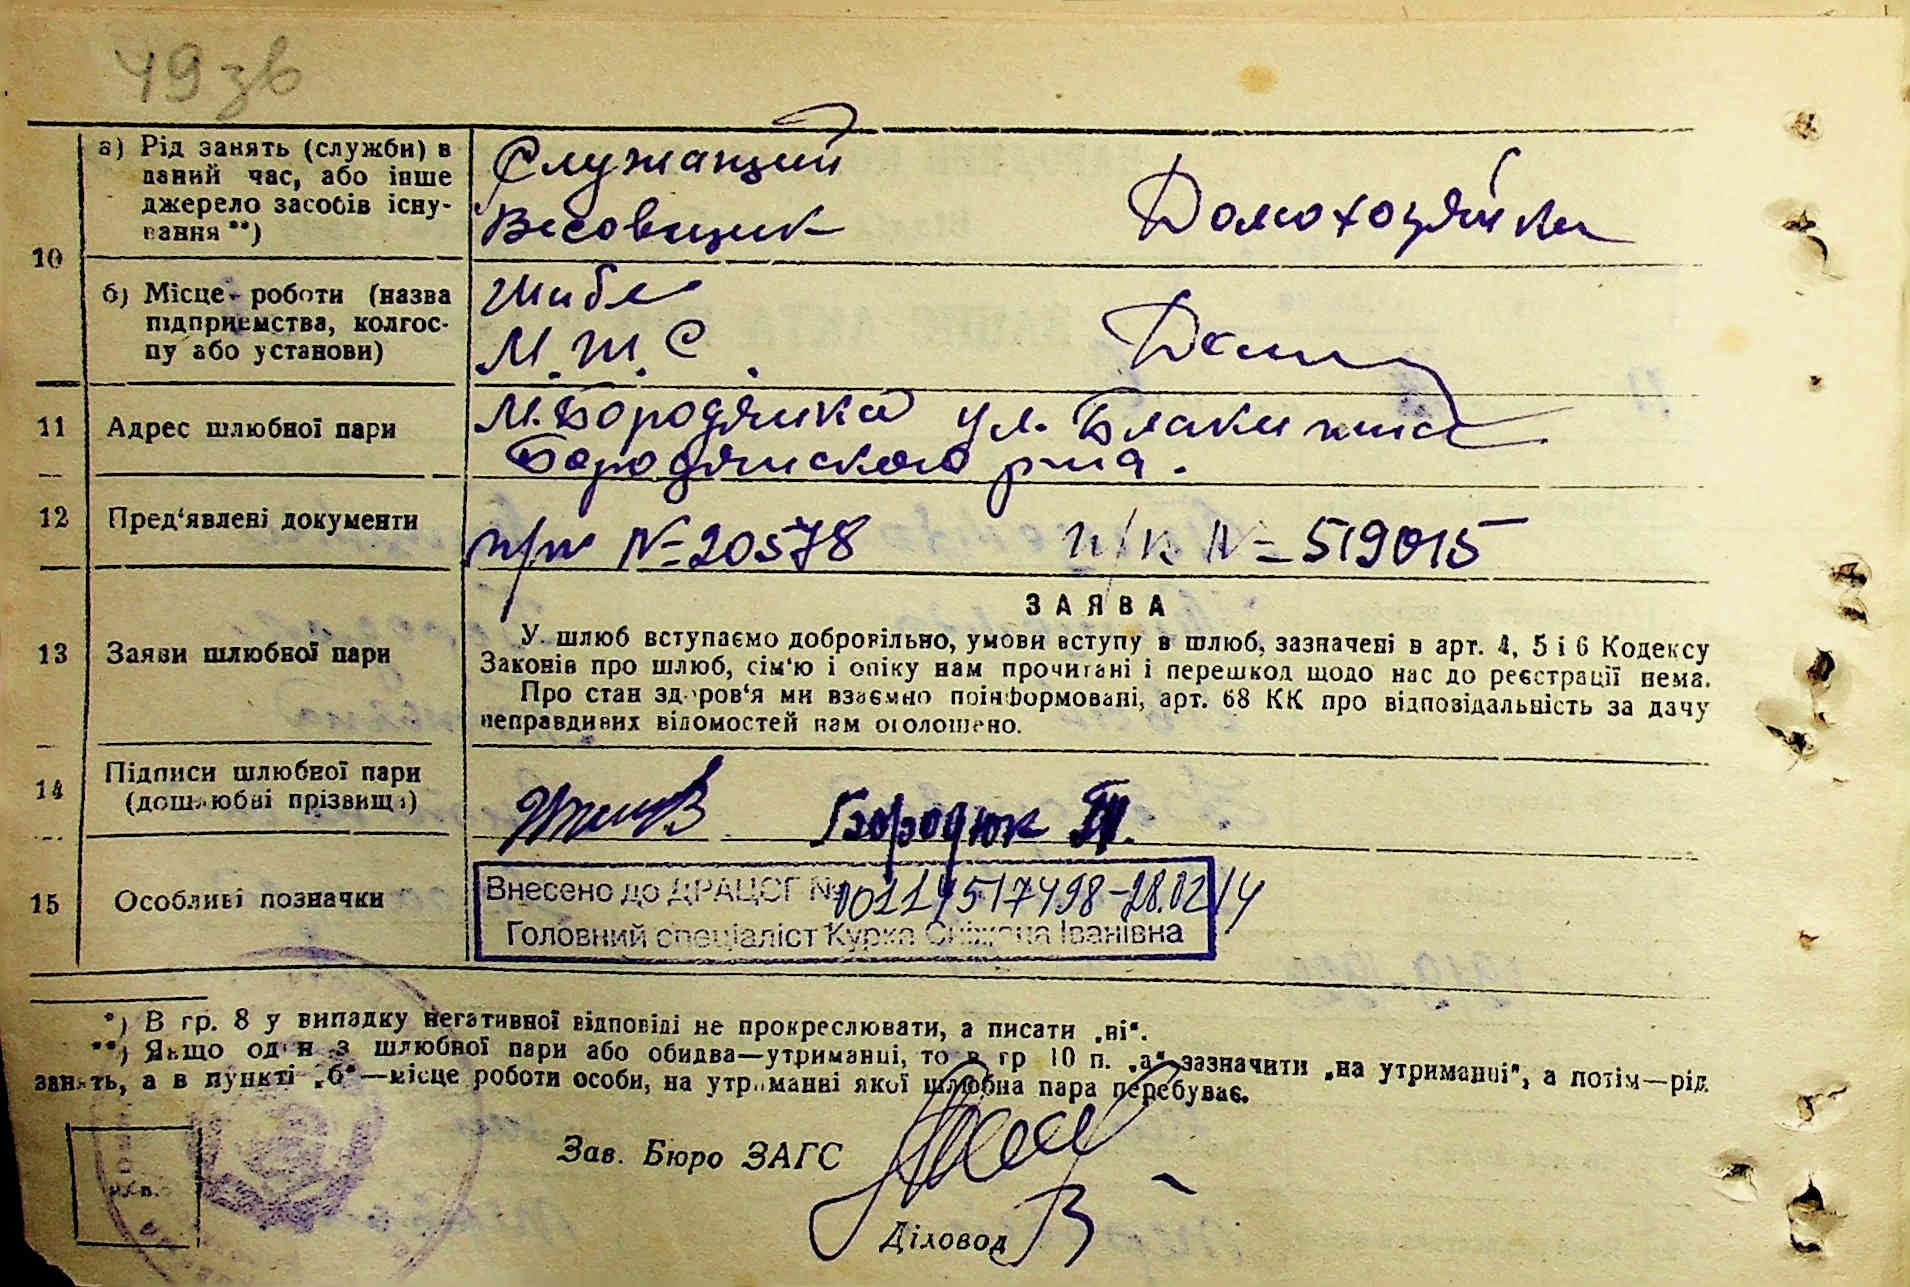 49 зв
а) Рід занять (служби) в
даний час, або інше
джерело засобів існу-
вання **)
Служащий
Весовщик
Домохозяйка
10
б) Місце роботи (назва
підприємства, колгос-
пу або установи)
М. Т. С.
11 Адрес шлюбної пари
М. Бородянка ул.
Бородянского р-на.
12 Пред'явлені документи
п/п № 20578 п/к № 519015
13 Заяви шлюбної пари
ЗАЯВА
У шлюб вступаємо добровільно, умови вступу в шлюб, зазначені в арт. 4, 5 і 6 Кодексу
Законів про шлюб, сім'ю і опіку нам прочитані і перешкод щодо нас до реєстрації нема.
Про стан здоров'я ми взаємно поінформовані, арт. 68 КК про відповідальність за дачу
неправдивих відомостей нам оголошено.
14 Підписи шлюбної пари
(дошлюбні прізвища)
Бородюк
15 Особливі позначки
Внесено до ДРАЦСГ № 00114517498-28.02.14
Головний спеціаліст Курка Сніжана Іванівна
*) В гр. 8 у випадку негативної відповіді не прокреслювати, а писати „ні“.
**) Якщо один з шлюбної пари або обидва—утриманці, то в гр 10 п. „а“ зазначити „на утриманні“, а потім—рід
занять, а в пункті „б“—місце роботи особи, на утриманні якої шлюбна пара перебуває.
Зав. Бюро ЗАГС
Діловод